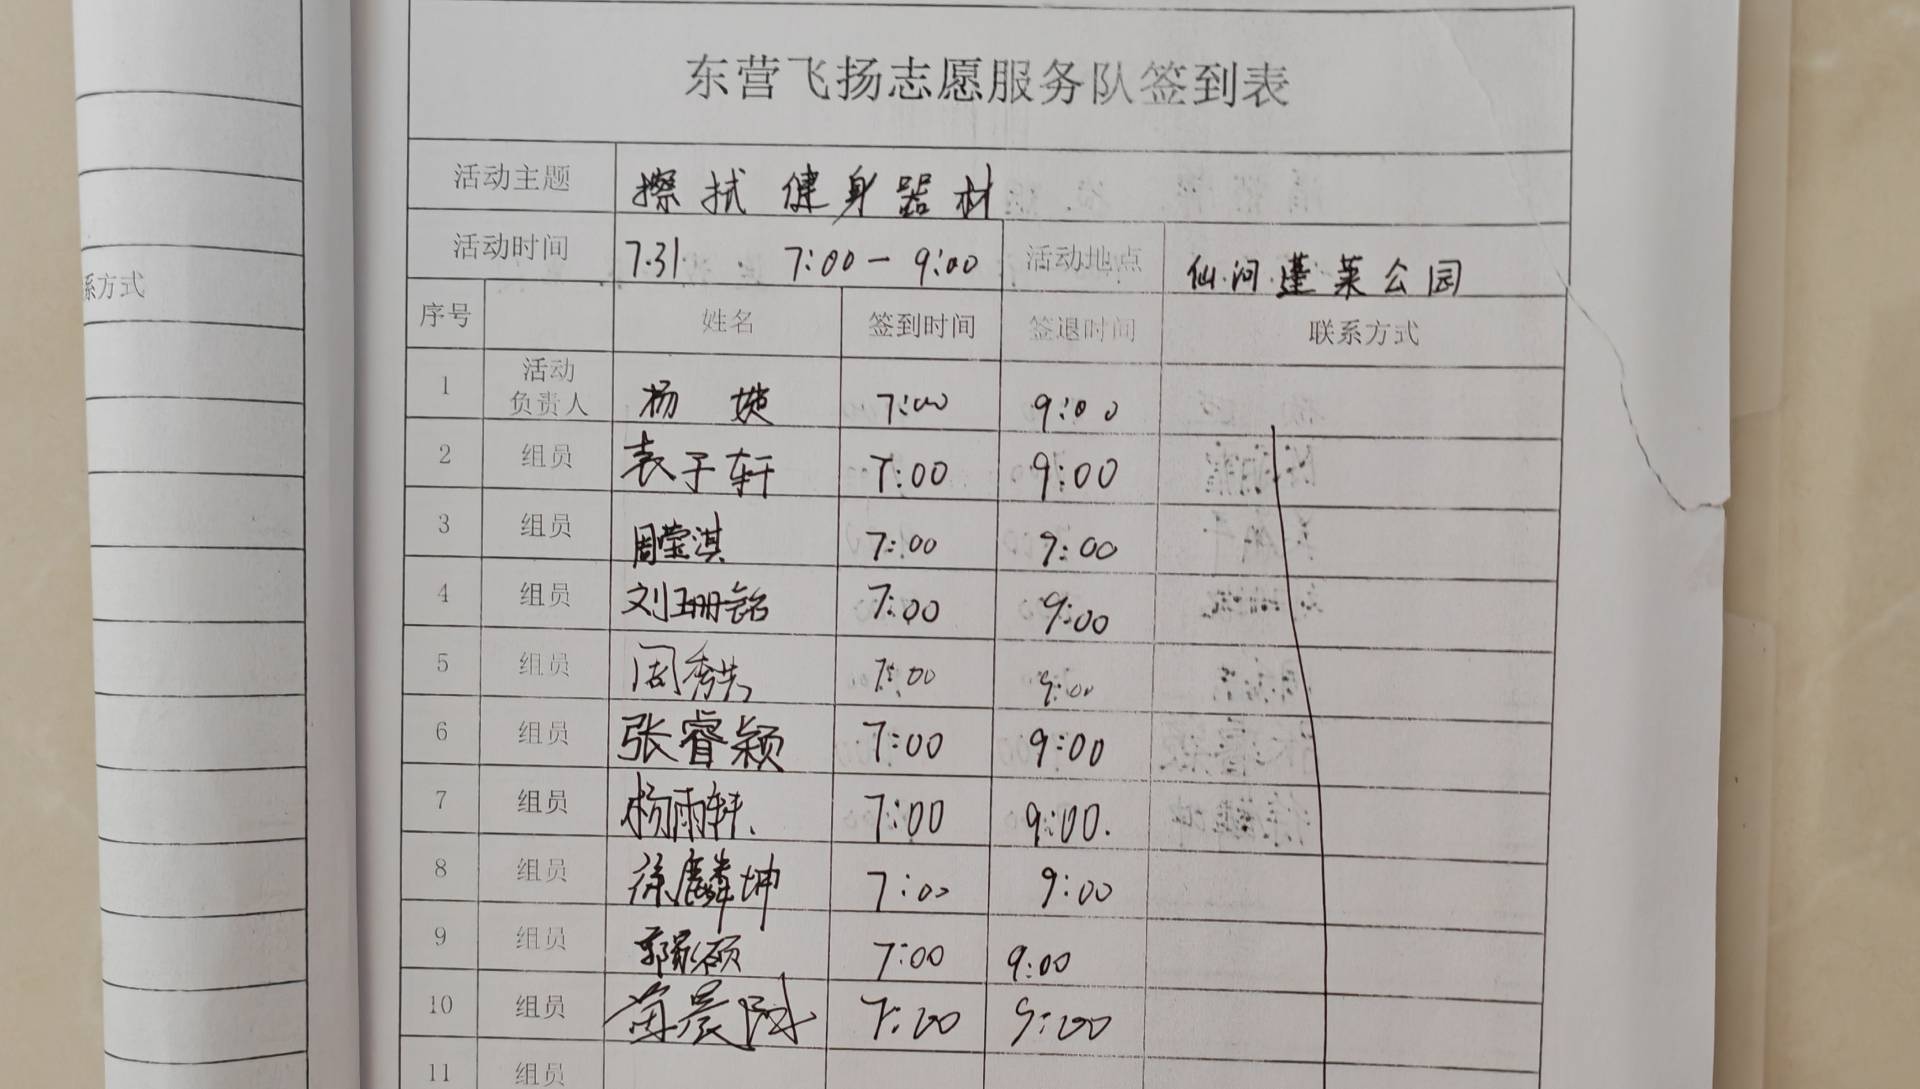 东营飞扬志愿服务队签到表
活动主题 擦拭健身器材
活动时间 7.31 7:00-9:00 活动地点 仙河蓬莱公园
序号 姓名 签到时间 签退时间 联系方式
1 活动负责人 杨 7:00 9:00
2 组员 袁子轩 7:00 9:00
3 组员 周莹淇 7:00 9:00
4 组员 刘珊铭 7:00 9:00
5 组员 周秀 7:00 9:00
6 组员 张睿颖 7:00 9:00
7 组员 杨雨轩 7:00 9:00.
8 组员 徐麟坤 7:00 9:00
9 组员 郭 硕 7:00 9:00
10 组员 苗晨 7:00 9:00
11 组员
系方式